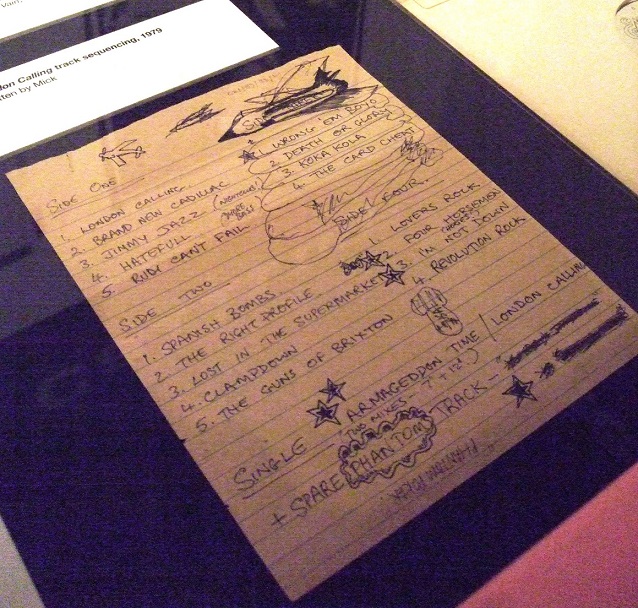 Vain,
don Calling track sequencing, 1979
ten by Mick
SIDE ONE
1. LONDON CALLING
2. BRAND NEW CADILLAC
3. JIMMY JAZZ
4. HATEFULL
5. RUDI CAN'T FAIL
SIDE TWO
1. SPANISH BOMBS
2. THE RIGHT PROFILE
3. LOST IN THE SUPERMARKET
4. CLAMPDOWN
5. THE GUNS OF BRIXTON
1. WRONG 'EM BOYO
2. DEATH OR GLORY
3. KOKA KOLA
4. THE CARD CHEAT
SIDE FOUR.
1. LOVERS ROCK
2. FOUR HORSEMEN
3. I'M NOT DOWN
4. REVOLUTION ROCK
SINGLE ARMAGEDDON TIME / LONDON CALLING
TWO MIXES - 7" + 12".)
+ SPARE PHANTOM TRACK -